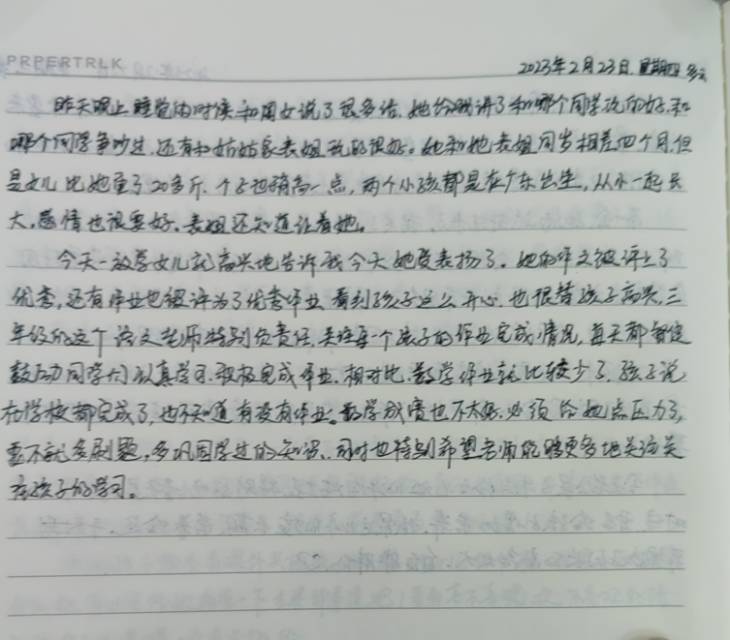 PRPERTRLK
2023年2月23日.星期四 多云
昨天晚上睡觉的时候和闺女说了很多话.她给我讲了和哪个同学玩的好.和
哪个同学争吵过.还有和姑姑家表姐玩的很好。她和她表姐同岁相差四个月.但
是女儿比她重了20多斤.个子也稍高一点,两个小孩都是在广东出生,从小一起长
大,感情也很要好.表姐还知道让着她。
今天一放学女儿就高兴地告诉我今天她受表扬了.她的作文被评上了
优秀,还有作业也被评为了优秀作业.看到孩子这么开心.也很替孩子高兴.三
年级的这个语文老师特别负责任,关注每一个孩子的作业完成情况,每天都督促
鼓励同学们认真学习.积极完成作业.相对比.数学作业就比较少了.孩子说
在学校都完成了,也不知道有没有作业。数学成绩也不太好.必须给她点压力了,
要不就多刷题,多巩固学过的知识、同时也特别希望老师能够更多地关注关
在孩子的学习。